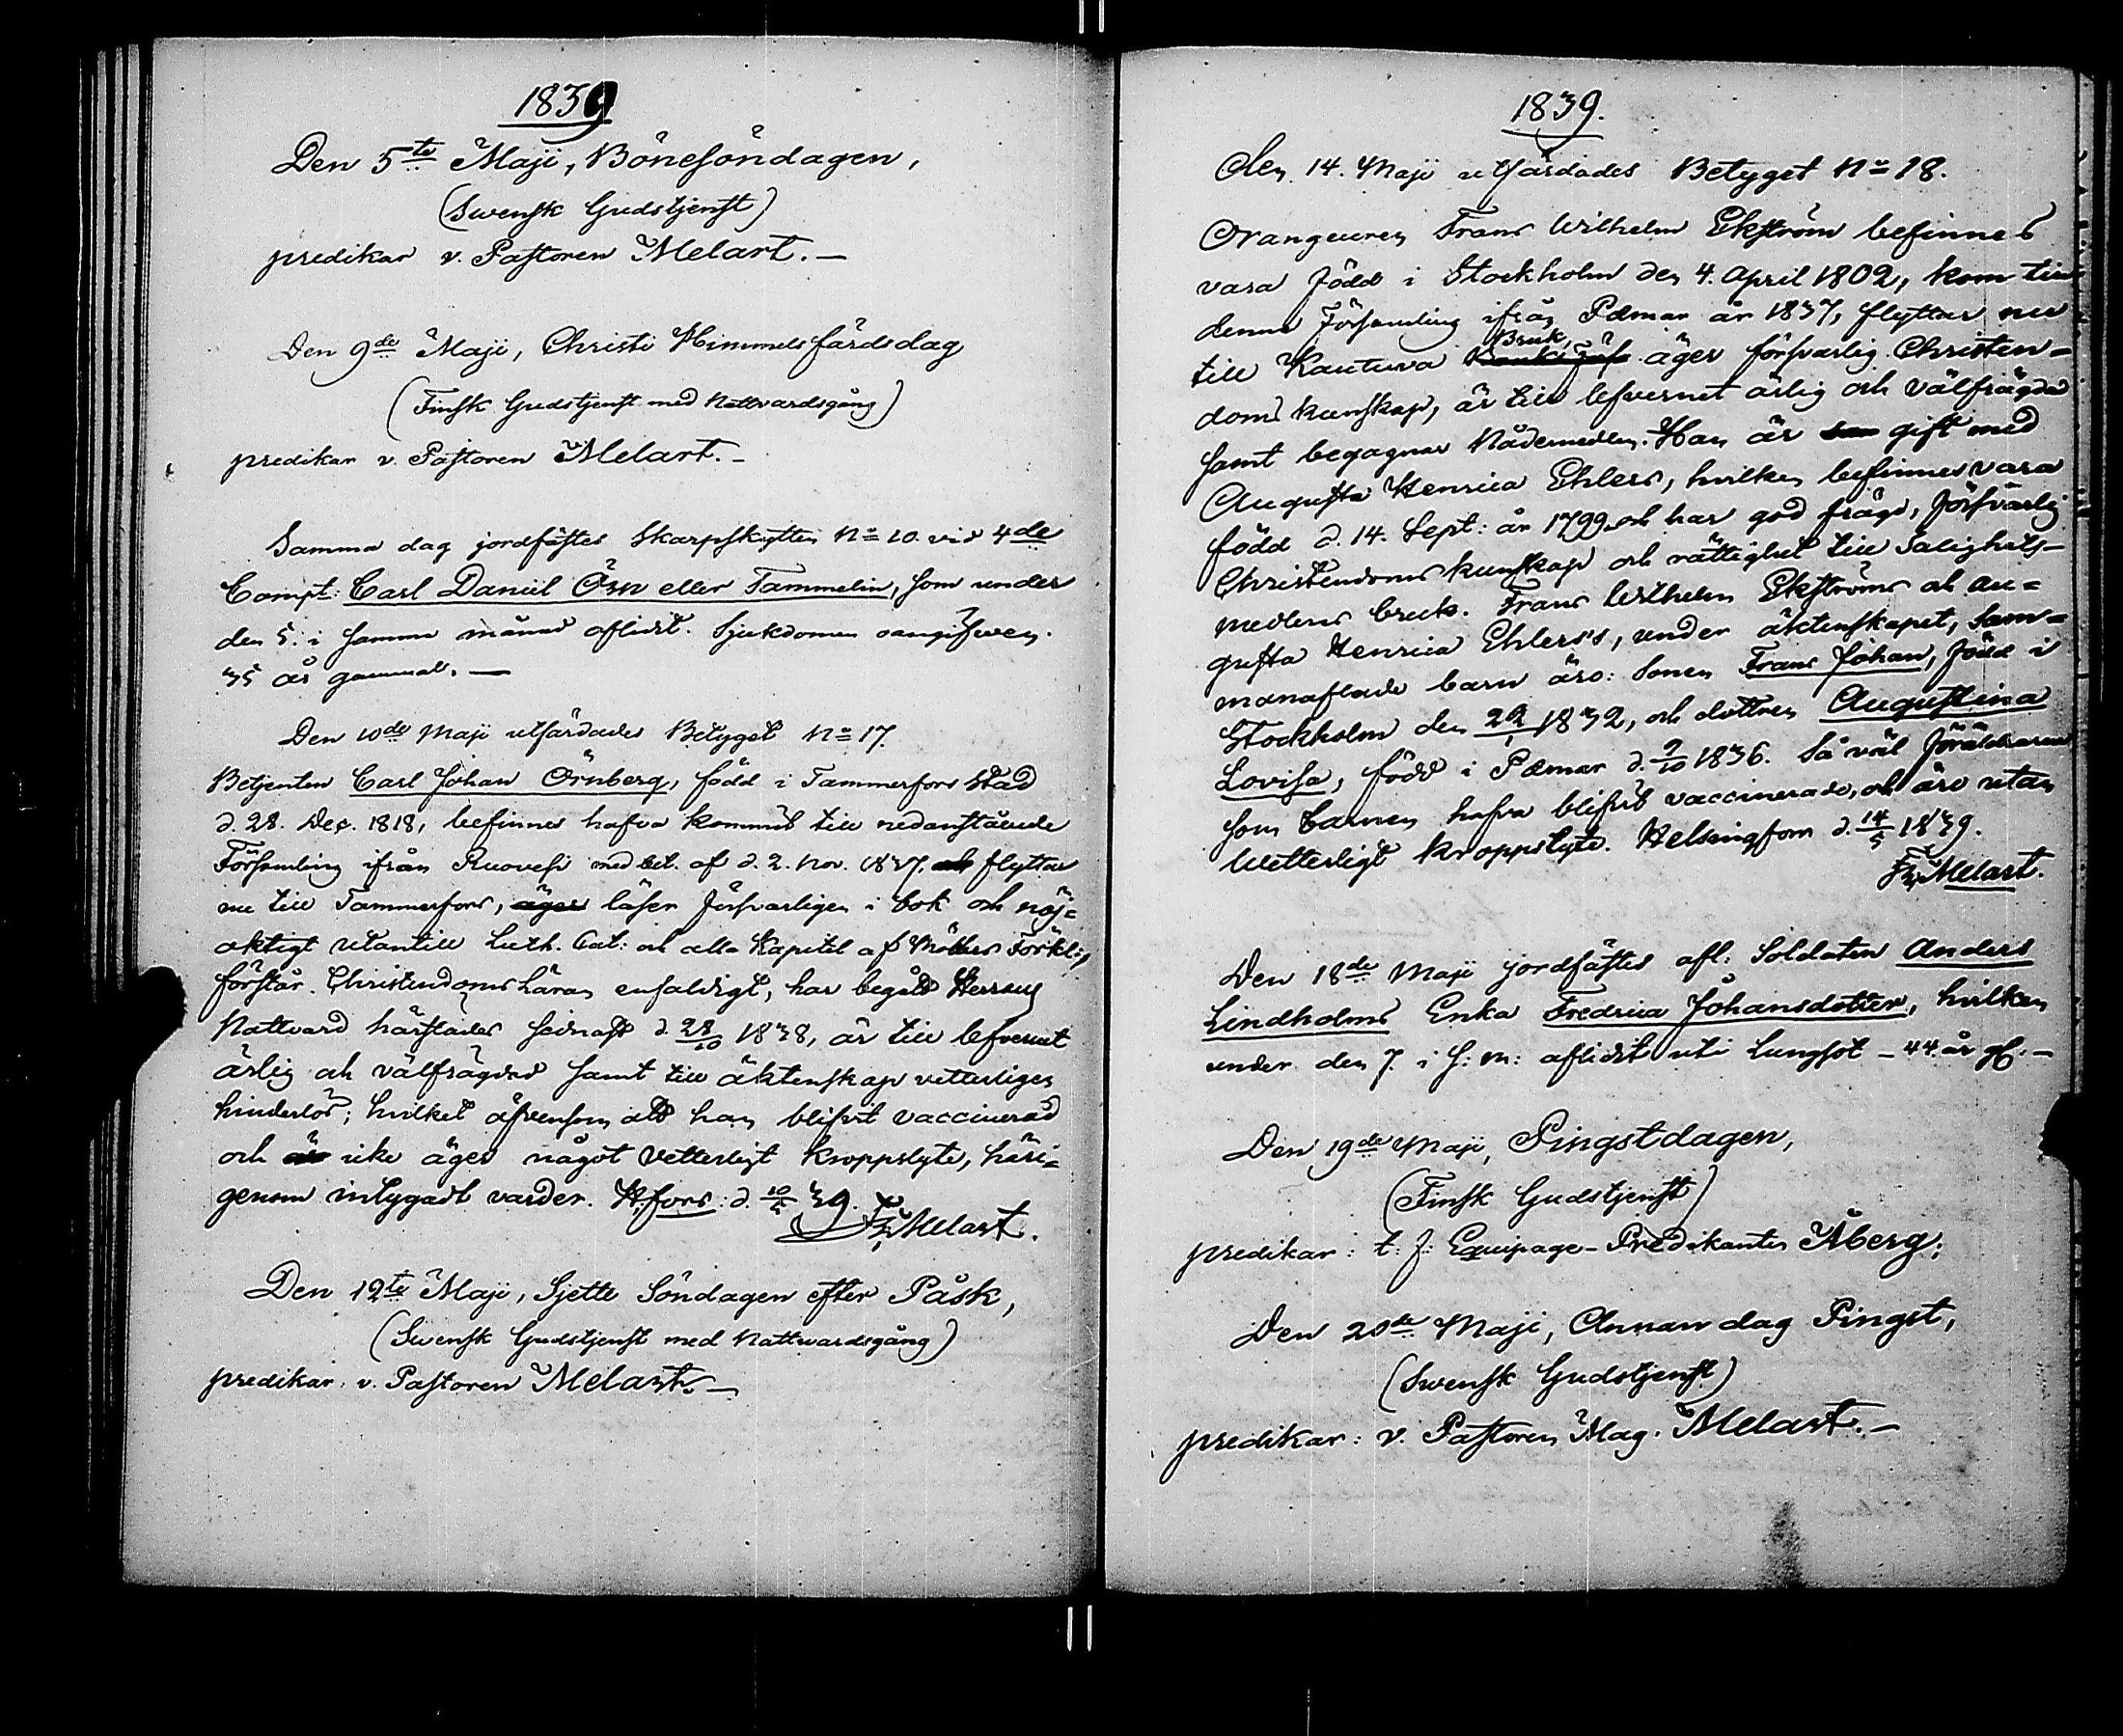 1839
Den 5te Maji, Bönesöndagen,
(Swensk Gudstjenst)
predikar v. Pastoren Melart. —
Den 9de Maji, Christi Himmelsfärdsdag
(Finsk Gudstjenst med Nattvardsgång)
predikar v. Pastoren Melart. —
Samma dag jordfästes Skarpskytten No 10. vid 4de
Comp: Carl Daniel Örn eller Tammelin, som under
den 5. i samma månad aflidit. Sjukdomen oangifwen.
35 år gammal. —
Den 10de Maji utfärdades Betyget No 17.
Betjenten Carl Johan Örnberg, född i Tammerfors Stad
d. 28. Dec. 1818, befinnes hafva kommit till nedanstående
Församling ifrån Ruovesi med bet. af d. 2. Nov. 1837, och flyttar
nu till Tammerfors, äger läser försvarligen i bok och nöj-
aktigt utantill Luth. Cat: och alla Kapitel af Förkl:,
förstår Christendoms Läran enfaldigt, har begått Herrans
Nattvard härstädes sednast d. 28/10 1838, är till lefvernet
ärlig och välfrägdad samt till äktenskap vetterligen
hinderlös; hvilket äfvensom att han blifvit vaccinerad
och är icke äger något vetterligt kroppslyte, häri-
genom intygadt varder. H.fors: d. 10/5 39. Fr Melart.
Den 12te Maji, Sjette Söndagen efter Påsk,
(Swensk Gudstjenst med Nattwardsgång)
predikar v. Pastoren Melart. —
1839.
Den 14. Maji utfärdades Betyget No 18.
Orangeuren Frans Wilhelm Ekström befinnes
vara född i Stockholm den 4. April 1802, kom till
denna Församling ifrån Pemar år 1837, flyttar nu
Bruk,
till Kautuva äger försvarlig Christen-
doms kunskap, är till lefvernet ärlig och välfrägdad
samt begagnar Nådemedlen. Han är gift med
Augusta Henrica Ehlers, hvilken befinnes vara
född d. 14. Sept: år 1799 och har god frägd, försvarlig
Christendoms kunskap och rättighet till Salighets-
medlens bruk. Frans Wilhelm Ekströms och Au-
gusta Henrica Ehlers's, under äktenskapet, sam-
manaflade barn äro: Sonen Frans Johan, född i
Stockholm den 22/1 1832, och dottren Augustina
Lovisa, född i Pemar d. 9/10 1836. Så väl föräldrarne
som barnen hafva blifvit vaccinerade, och äro utan
wetterligt kroppslyte. Helsingfors d. 14/5 1839.
Fr Melart.
Den 18de Maji jordfästes afl: Soldaten Anders
Lindholms Enka Fredrica Johansdotter, hvilken
under den 7. i s: m: aflidit uti Lungsot - 44. år gl. —
Den 19de Maji, Pingstdagen,
(Finsk Gudstjenst)
predikar: t. f. Equipage-Predikanten Åberg;
Den 20de Maji, Annandag Pingst,
(Swensk Gudstjenst)
predikar: v. Pastoren Mag. Melart. —